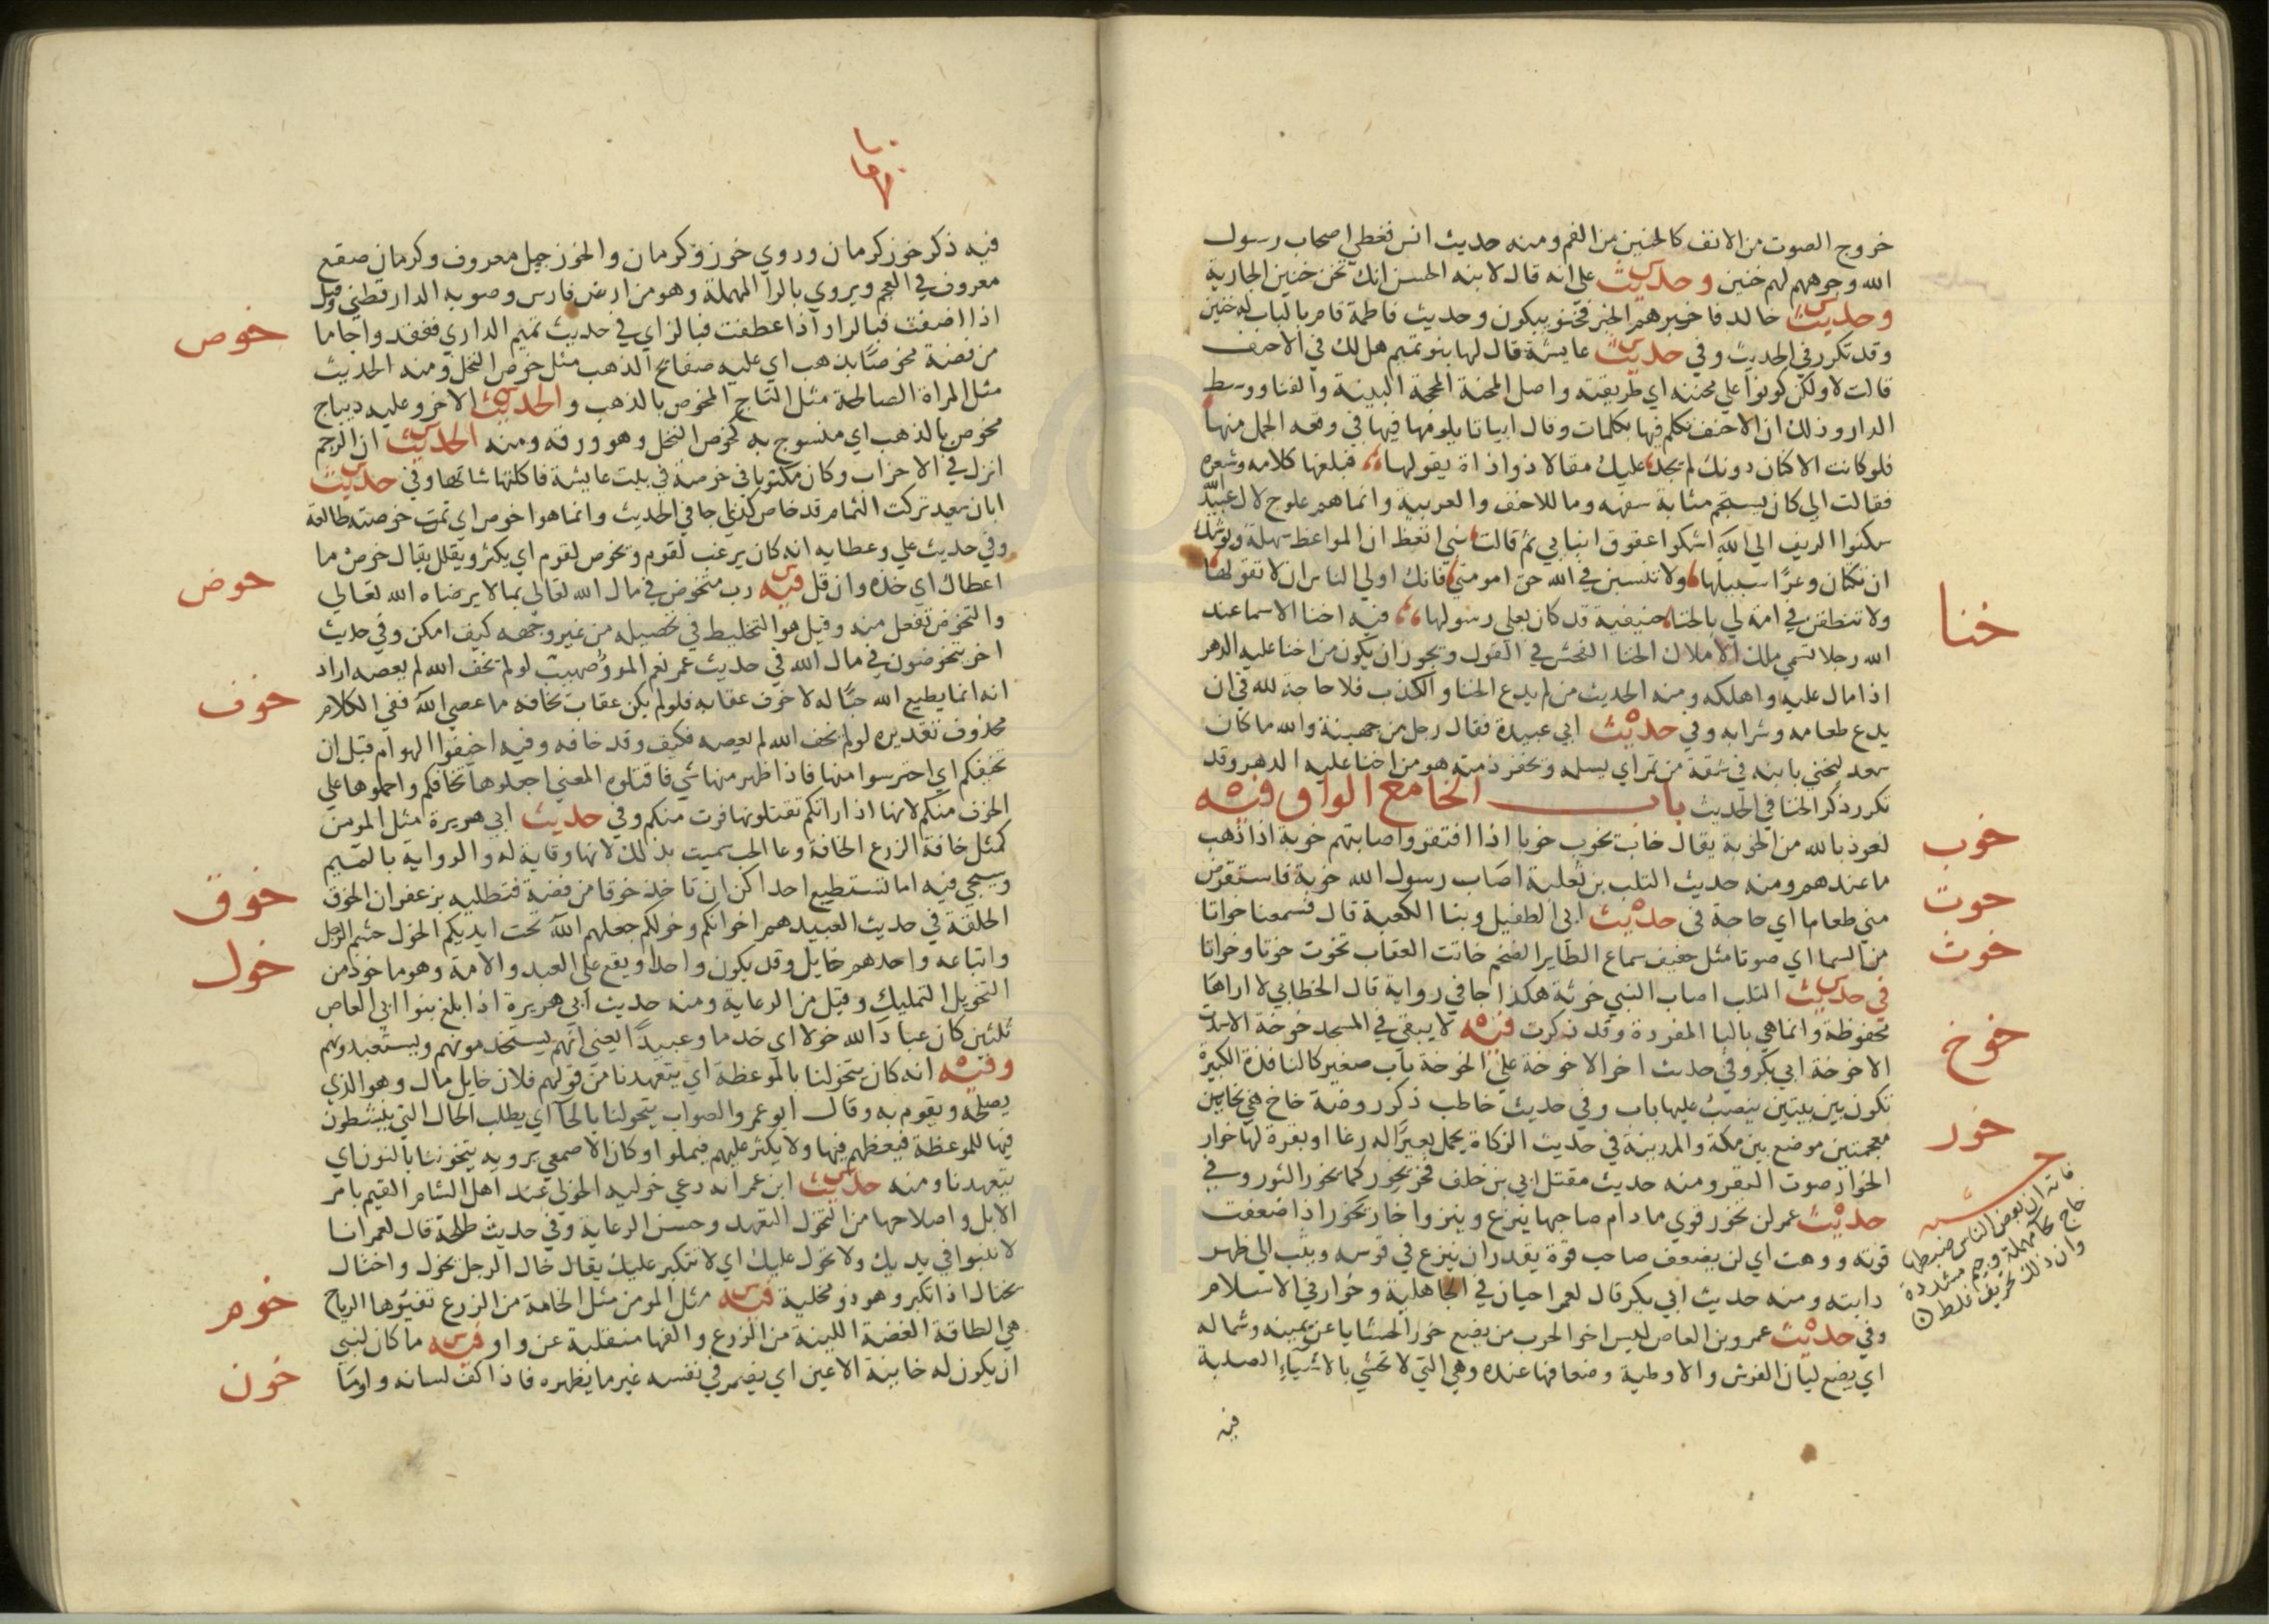 خروج الصوت من الانف كالحنين من الفم ومنه حديث انس فغطي اصحاب رسول
الله وجوههم لهم خنين وحديث علي انه قال لابنه الحسن انك تخن خنين الجارية
وحديث خالد فاخبرهم الخبر فخنو يبكون وحديث فاطمة قام بالباب له خنين
وقد تكرر في الحديث وفي حديث عايشة قال لها بنو تميم هل لك في الاحنف
قالت لا ولكن كونوا علي مخنته اي طريقته واصل المخنة المحجة البينة والفنا ووسط
الدار وذلك ان الاحنف تكلم فيها بكلمات وقال ابياتا يلومها فيها في وقعة الجمل منها
فلو كانت الاكنان دونك لم يجد عليك مقالا ذو اذاة يقولها فبلغها كلامه وشعره
فقالت الي كان يستجم مثابة سفهه وما للاحنف والعربية وانما هم علوج لال عبيد
سكنوا الريف الي الله اشكوا عقوق ابنايي ثم قالت بني اتعظ ان المواعظ سهلة ويوشك
ان تكتان وعرا سبيلها ولا تنسين في الله حق امومتي فانك اولي الناس ان لا تقولها
ولا تنطقن في امة لي بالخنا حنيفية قد كان بعلي رسولها فيه اخنا الاسما عند
الله رجلا تسمي ملك الاملاك الخنا الفحش في القول ويجوز ان يكون من اخنا عليه الدهر
اذا مال عليه واهلكه ومنه الحديث من لم يدع الخنا والكذب فلا حاجة لله في ان
يدع طعامه وشرابه وفي حديث ابي عبيدة فقال رجل من جهينة والله ما كان
سعد ليخني بابنه في شقة من تمر اي يسلمه ويخفر ذمته هو من اخنا عليه الدهر وقد
تكرر ذكر الخنا في الحديث باب الخا مع الواو فيه
نعوذ بالله من الخوبة يقال خاب يخوب خوبا اذا افتقر واصابتهم خوبة اذا ذهب
ما عندهم ومنه حديث التلب بن ثعلبة اصاب رسول الله خوبة فاستقرض
مني طعاما اي حاجة في حديث ابي الطفيل وبنا الكعبة قال فسمعنا خواتا
من السما اي صوتا مثل حفيف سماع الطاير الضخم خاتت العقاب تخوت خوتا وخواتا
في حديث التلب اصاب النبي خوثة هكذا جا في رواية قال الخطابي لا اراها
محفوظة وانما هي بالبا المفردة وقد ذكرت فيه لا يبقي في المسجد خوخة الا سدت
الا خوخة ابي بكر وفي حديث اخر الا خوخة علي الخوخة باب صغير كالنافذة الكبيرة
تكون بين بيتين ينصب عليها باب وفي حديث حاطب ذكر روضة خاخ هي بخايين
معجمتين موضع بين مكة والمدينة في حديث الزكاة يحمل بعيرا له رغا او بقرة لها خوار
الخوار صوت البقر ومنه حديث مقتل ابي بن خلف فخر يخور كما يخور الثور وفي
حديث عمر لن تخور قوي ما دام صاحبها ينزع وينزوا خار يخور اذا ضعفت
قوته ووهت اي لن يضعف صاحب قوة يقدر ان ينزع في قوسه ويثب الي ظهر
دابته ومنه حديث ابي بكر قال لعمر اجبان في الجاهلية وخوار في الاسلام
وفي حديث عمرو بن العاص ليس اخو الحرب من يضع خور الحشايا عن يمينه وشماله
اي يضع ليان الفرش والاوطية وضعافها عنده وهي التي لا تحشي بالاشياء الصلبة
فيه
خنا
خوب
خوت
خوث
خوخ
خور
فائدة ان بعض الناس ضبطها
حاج بحا مهملة وجيم مشددة
وان ذلك تحريف غلط
فيه ذكر خوز كرمان وروي خوز وكرمان والخوز جيل معروف وكرمان صقع
معروف في العجم ويروي بالرا المهملة وهو من ارض فارس وصوبه الدارقطني وقيل
اذا اضفت فبالرا واذا عطفت فبالزاي في حديث تميم الداري ففقد واجاما
من فضة مخوصا بذهب اي عليه صفائح الذهب مثل خوص النخل ومنه الحديث
مثل المراة الصالحة مثل التاج المخوص بالذهب والحديث الاخر وعليه ديباج
مخوص بالذهب اي منسوج به كخوص النخل وهو ورقه ومنه الحديث ان الرجم
انزل في الاحزاب وكان مكتوبا في خوصة في بيت عايشة فاكلتها شاتها وفي حديث
ابان بن سعيد تركت الثمام قد خاص كذلي جا في الحديث وانما هو اخوص اي تمت خوصته طالعة
وفي حديث علي وعطايه انه كان يرعب لقوم ويخوص لقوم اي يكثر ويقلل يقال خوص ما
اعطاك اي خذه وان قل فيه رب متخوض في مال الله تعالي بما لا يرضاه الله تعالي
والتخوض تفعل منه وقيل هو التخليط في تحصيله من غير وجهه كيف امكن وفي حديث
اخر يتخوضون في مال الله في حديث عمر نعم المرو صهيب لو لم يخف الله لم يعصه اراد
انه انما يطيع الله حبا له لا خوف عقابه فلو لم يكن عقاب يخافه ما عصي الله ففي الكلام
محذوف تقديره لو لم يخف الله لم يعصه فكيف وقد خافه وفيه اخيفوا الهوام قبل ان
تخيفكم اي احترسوا منها فاذا ظهر منها شي فاقتلوه المعني اجعلوها تخافكم واحملوها علي
الخوف منكم لانها اذا راتكم تقتلونها فرت منكم وفي حديث ابي هريرة مثل المومن
كمثل خافة الزرع الخافة وعا الحب سميت بذلك لانها وقاية له والرواية بالميم
وسيجي فيه اما تستطيع احداكن ان تاخذ خوقا من فضة فتطليه بزعفران الخوق
الحلقة في حديث العبيد هم اخوانكم وخولكم جعلهم الله تحت ايديكم الخول حشم الرجل
واتباعه واحدهم خايل وقد يكون واحدا ويقع علي العبد والامة وهو ماخوذ من
التخويل التمليك وقيل من الرعاية ومنه حديث ابي هريرة اذا بلغ بنوا ابي العاص
ثلثين كان عباد الله خولا اي خدما وعبيدا يعني انهم يستخدمونهم ويستعبدونهم
وفيه انه كان يتخولنا بالموعظة اي يتعهدنا من قولهم فلان خايل مال وهو الذي
يصلحه ويقوم به وقال ابو عمر والصواب يتحولنا بالحا اي يطلب الحال التي ينشطون
فيها للموعظة فيعظهم فيها ولا يكثر عليهم فيملوا وكان الاصمعي يرويه يتخوننا بالنون اي
يتعهدنا ومنه حديث ابن عمر انه دعي خوليه الخولي عند اهل الشام القيم بامر
الابل واصلاحها من التخول التعهد وحسن الرعاية وفي حديث طلحة قال لعمر انا
لا ننبوا في يديك ولا نخول عليك اي لا نتكبر عليك يقال خال الرجل يخول واختال
يختال اذا تكبر وهو ذو مخلية فيه مثل المومن مثل الخامة من الزرع تفيئوها الرياح
هي الطاقة الغضة اللينة من الزرع والفها منقلبة عن واو فيه ما كان لنبي
ان يكون له خاينة الاعين اي يضمر في نفسه غير ما يظهره فاذا كف لسانه واومئا
خوص
خوض
خوف
خوق
خول
خوم
خون